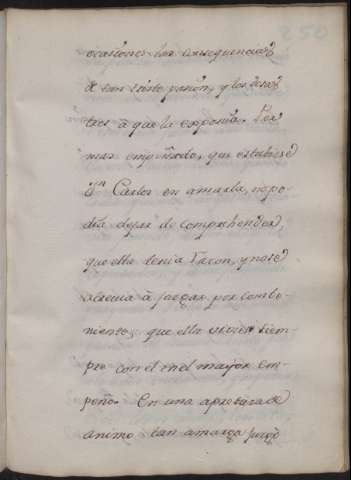 250
ocasiones las consequencias
de tan triste pasion, y los desas
tres à que la exponia. Por
mas empeñado, que estubiese
Dn Carlos en amarla, no po
dia dejar de comprehender,
que ella tenia razon, y no se
atrevia à juzgar por combe-
niente, que ella viviese siem-
pre con el en el mayor em-
peño. En una apretura de
animo tan amarga juzgò